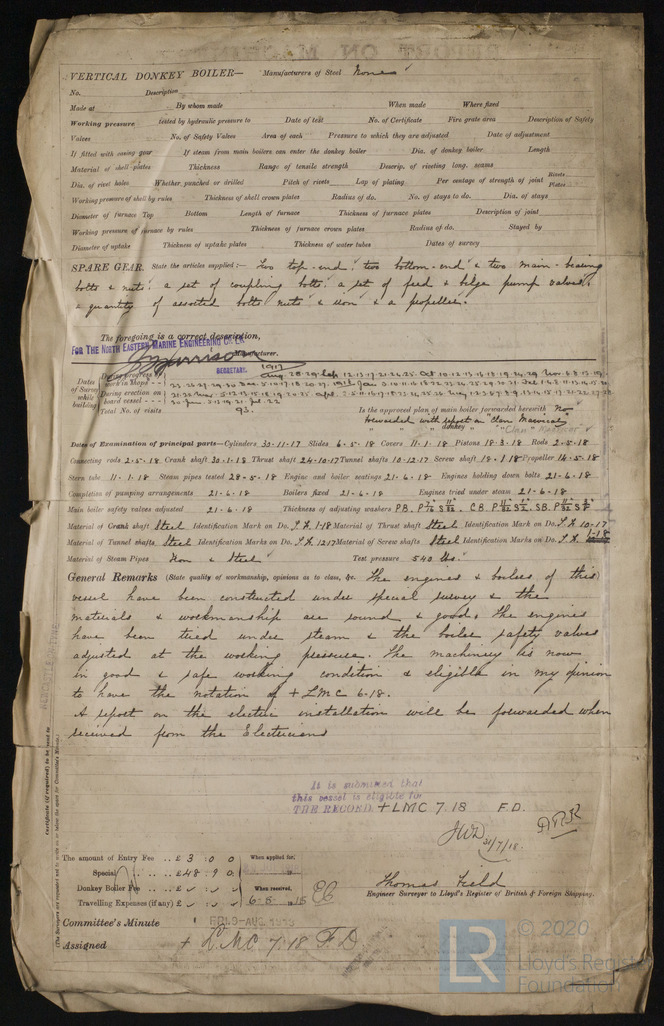 VERTICAL DONKEY BOILER— Manufacturers of Steel None
No. Description
Made at By whom made When made Where fixed
Working pressure tested by hydraulic pressure to Date of test No. of Certificate Fire grate area Description of Safety
Valves No. of Safety Valves Area of each Pressure to which they are adjusted Date of adjustment
If fitted with easing gear If steam from main boilers can enter the donkey boiler Dia. of donkey boiler Length
Material of shell plates Thickness Range of tensile strength Descrip. of riveting long. seams
Dia. of rivet holes Whether punched or drilled Pitch of rivets Lap of plating Per centage of strength of joint Rivets Plates
Working pressure of shell by rules Thickness of shell crown plates Radius of do. No. of stays to do. Dia. of stays
Diameter of furnace Top Bottom Length of furnace Thickness of furnace plates Description of joint
Working pressure of furnace by rules Thickness of furnace crown plates Radius of do. Stayed by
Diameter of uptake Thickness of uptake plates Thickness of water tubes Dates of survey
SPARE GEAR. State the articles supplied:— Two top-end, two bottom-end & two main-bearing
bolts & nuts, a set of coupling bolts, a set of feed & bilge pump valves,
a quantity of assorted bolts nuts & iron & a propeller.
The foregoing is a correct description,
FOR THE NORTH EASTERN MARINE ENGINEERING Co. Ld.
Manufacturer.
SECRETARY.
Dates of Survey while building
During progress of work in shops - -
During erection on board vessel - - -
Total No. of visits 93.
Is the approved plan of main boiler forwarded herewith No
forwarded with report on "Clan Macvicar"
" " donkey " " "
Dates of Examination of principal parts—Cylinders 30-11-17 Slides 6-5-18 Covers 11-1-18 Pistons 18-3-18 Rods 2-5-18
Connecting rods 2-5-18 Crank shaft 30-1-18 Thrust shaft 24-10-17 Tunnel shafts 10-12-17 Screw shaft 18-1-18 Propeller 14-5-18
Stern tube 11-1-18 Steam pipes tested 28-5-18 Engine and boiler seatings 21-6-18 Engines holding down bolts 21-6-18
Completion of pumping arrangements 21-6-18 Boilers fixed 21-6-18 Engines tried under steam 21-6-18
Main boiler safety valves adjusted 21-6-18 Thickness of adjusting washers
Material of Crank shaft Steel Identification Mark on Do. Material of Thrust shaft Steel Identification Mark on Do.
Material of Tunnel shafts Steel Identification Marks on Do. Material of Screw shafts Steel Identification Marks on Do.
Material of Steam Pipes Iron & Steel Test pressure 540 lbs.
General Remarks (State quality of workmanship, opinions as to class, &c. The engines & boilers of this
vessel have been constructed under special survey & the
materials & workmanship are sound & good. The engines
have been tried under steam & the boiler safety valves
adjusted at the working pressure. The machinery is now
in good & safe working condition & eligible in my opinion
to have the notation of + LMC 6-18.
A report on the electric installation will be forwarded when
received from the Electricians
It is submitted that
this vessel is eligible for
THE RECORD + LMC 7.18 F.D.
31/7/18.
The amount of Entry Fee .. £ 3 : 0 : 0 When applied for,
Special .. £ 48 : 9 : 0
Donkey Boiler Fee .. £ When received,
Travelling Expenses (if any) £ 6-8-18
Thomas Field
Engineer Surveyor to Lloyd's Register of British & Foreign Shipping.
Committee's Minute
Assigned + LMC 7.18 F D
Certificate (if required) to be sent to
(The Surveyors are requested not to write on or below the space for Committee's Minute.)
© 2020
LR Lloyd's Register
Foundation